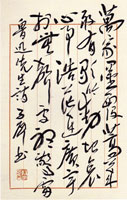 萬家墨面没蒿萊
敢有歌吟動地哀
心事浩茫連廣宇
於無聲處聽驚雷
魯迅先生詩
書